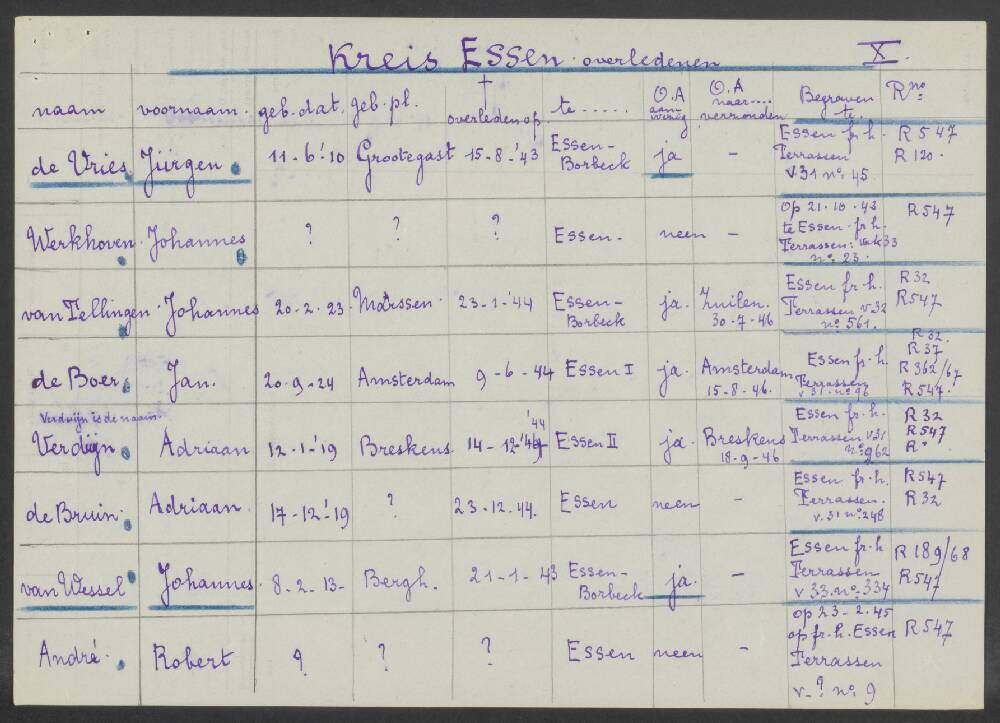 Kreis Essen. overledenen X.
naam voornaam. geb. dat. geb. pl. † overleden op. te ...... O.A aanwezig O.A naar.... verzonden Begraven te. R no.
de Vries. Jürgen. 11-6-'10 Grootegast 15-8-'43 Essen-Borbeck ja - Essen fr. h. Terrassen v 31 no: 45 R 547 R 120.
Werkhoven. Johannes ? ? ? Essen- neen - Op 21-10-43 te Essen. fr. h. Terrassen: vak 33 no: 23. R 547
van Tellingen. Johannes 20-2-23. Marssen. 23-1-'44 Essen-Borbeck ja. Zuilen. 30-7-46 Essen fr. h. Terrassen v 32 no: 561. R 32 R 547
de Boer. Jan. 20-9-24 Amsterdam 9-6-44 Essen I ja. Amsterdam 15-8-46. Essen fr. h. Terrassen v 31. no: 96 R 32. R 37 R 362/67 R 547.
Verdüijn is de naam.
Verdüijn. Adriaan 12-1-'19 Breskens. 14-12-'44 Essen II ja. Breskens 18-9-46 Essen fr. h. Terrassen v 31 no: 962 R 32 R 547 R.
de Bruin. Adriaan 17-12-'19 ? 23-12-44. Essen neen - Essen fr. h. Terrassen. v. 31 no: 248 R 547 R 32
van Wessel. Johannes. 8-2-13- Bergh. 21-1-43 Essen-Borbeck ja. - Essen fr. h Terrassen v 33. no: 334 R 189/68 R 547
André. Robert ? ? ? Essen neen - op 23-2-45 op fr. h. Essen Terrassen v-? no: 9 R 547